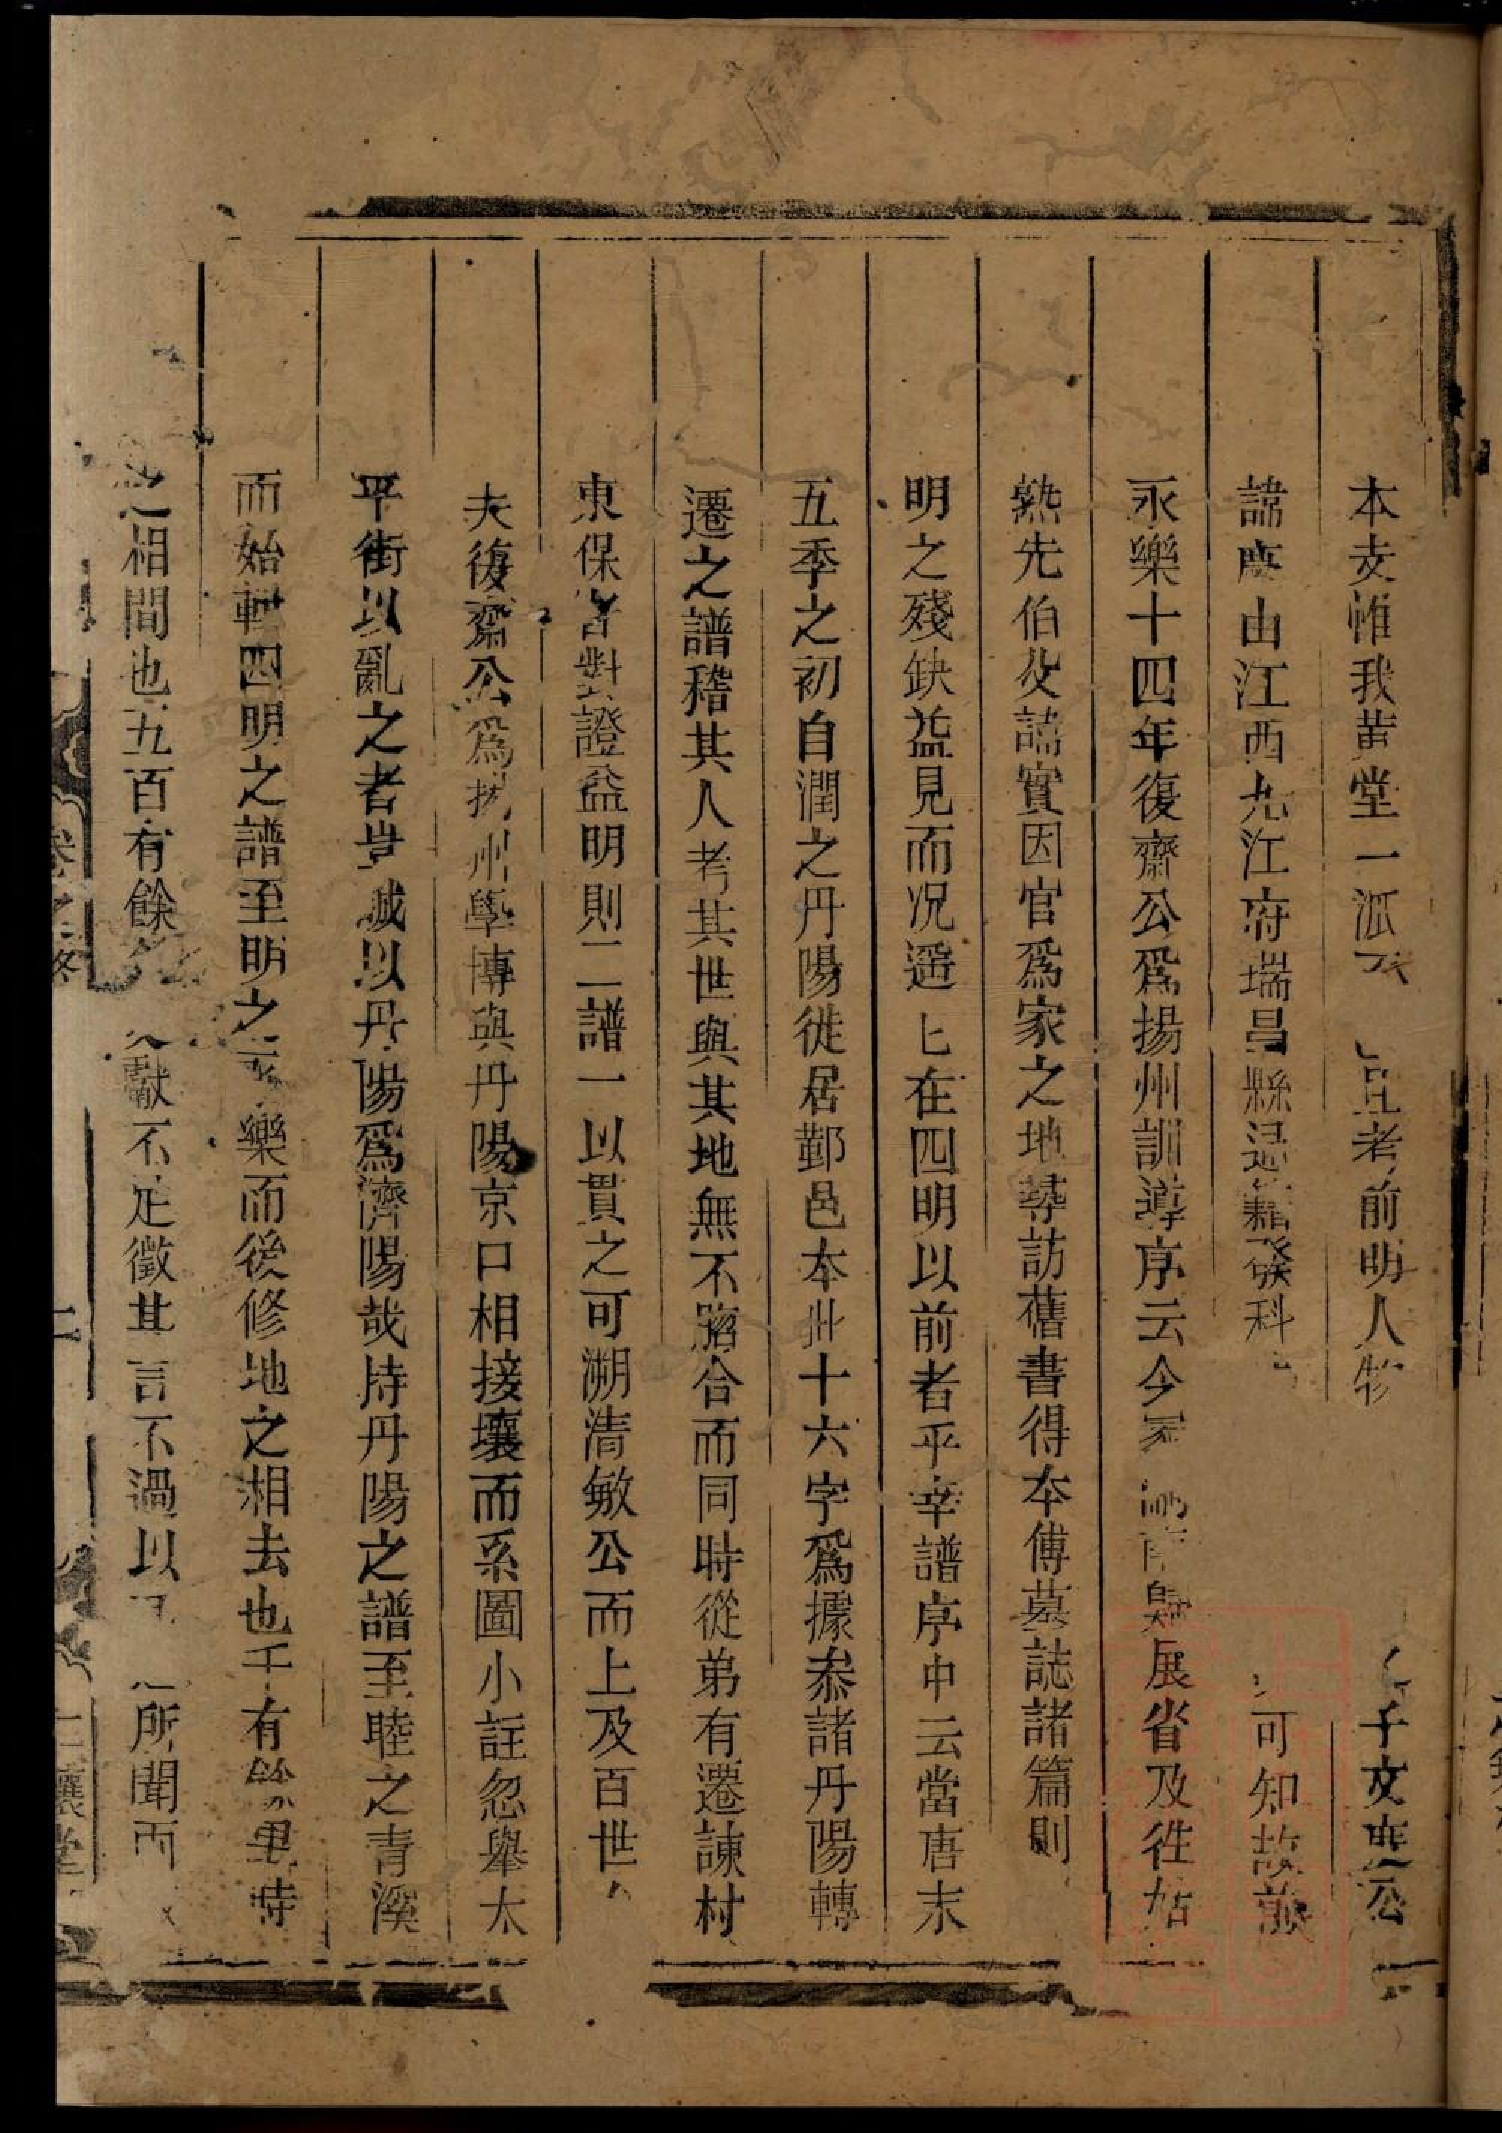 本支惟我黄堂一派 且考前明人物 子文 公
諱慶由江西九江府瑞昌縣 籍發科 可知故前
永樂十四年復齋公爲揚州訓導序云今 歸展省及往姑
熟先伯父諱實因官爲家之地尋訪舊書得本傳墓誌諸篇則
明之殘缺益見而况遥上在四明以前者乎幸譜序中云當唐末
五季之初自潤之丹陽徙居鄞邑本此十六字爲據叅諸丹陽轉
遷之譜稽其人考其世與其地無不脗合而同時從弟有遷諫村
東保者對證益明則二譜一以貫之可溯清敏公而上及百世
夫復齋公爲揚州學博與丹陽京口相接壤而系圖小註忽舉太
平街以亂之者豈誠以丹陽爲濟陽哉持丹陽之譜至睦之青溪
而始輯四明之譜至明之永樂而後修地之相去也千有餘里時
之相間也九百有餘 獻不足徵其言不過以 所聞而